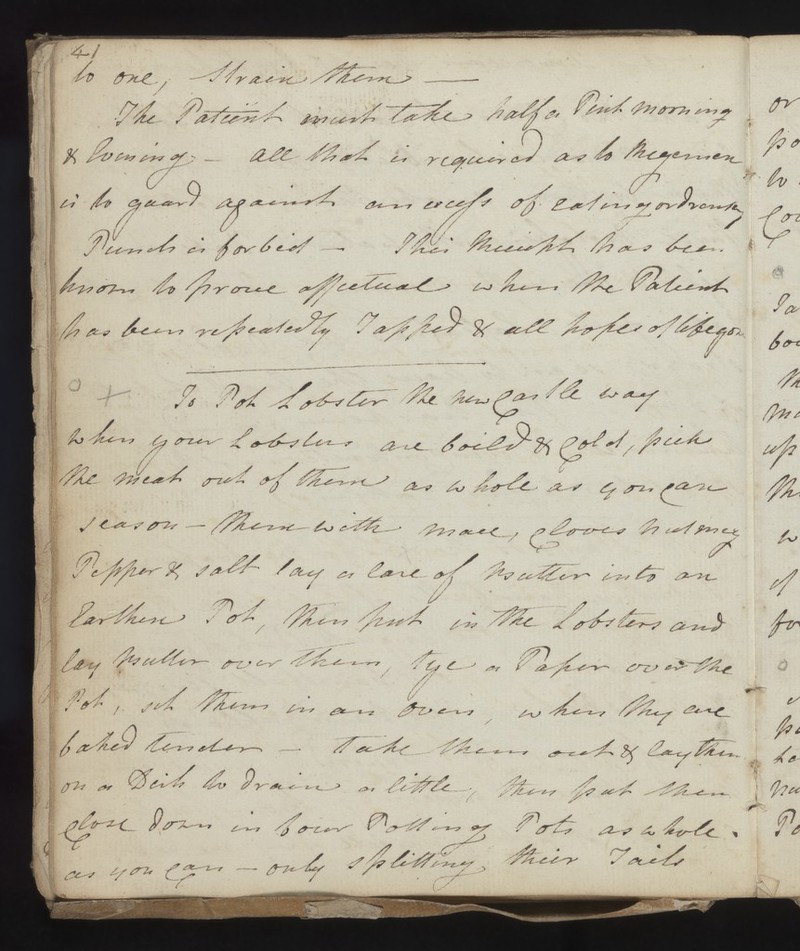 41
to one, Strain them —
The Patient must take half a Pint morning
& Evening — all that is required as to Regemen
is to guard against an excess of eating or drinking
Punch is forbid — This Receipt has been
known to prove affectual when the Patient
has been repeatedly Tapped & all hopes of life gon
To Pot Lobster the new Castle way
when your Lobsters are boild & Cold, pick
the meat out of them as whole as you can
season — them with mace, cloves nutmeg
Pepper & salt lay a Cake of butter into an
Earthen Pot, then put in the Lobsters and
lay butter over them, tye a Paper over the
Pot, set them in an oven, when they are
baked tender — take them out & lay them
on a Dish to drain a little, then put them
close down in your Potting Pots as whole
as you can — only splitting their Tails
or
po
to
Co
bo
up
w
of
for
Po